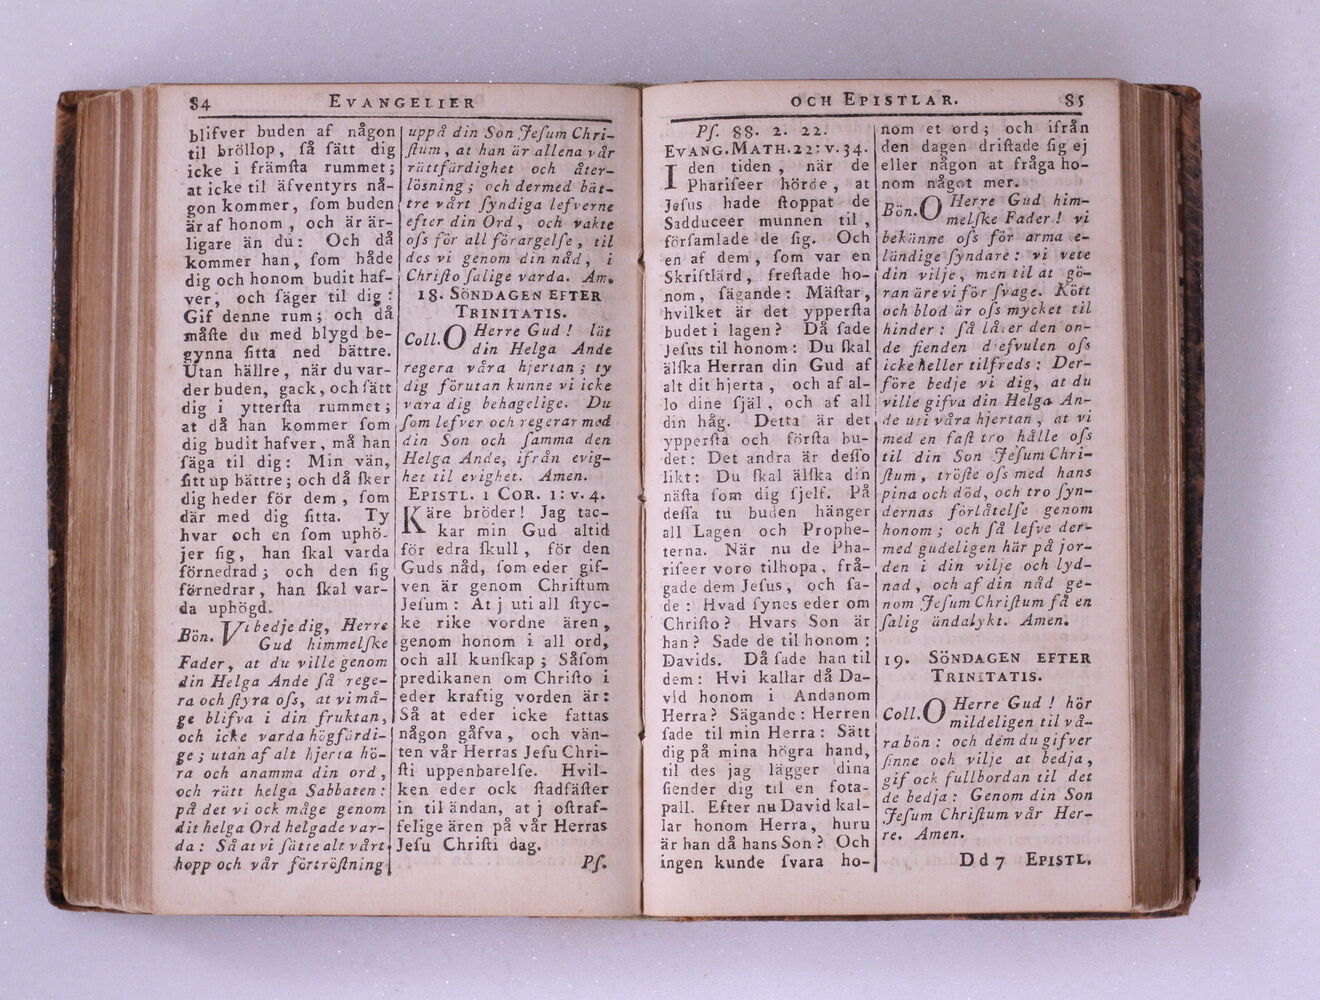 84 EVANGELIER
blifver buden af någon
til bröllop, ſå ſätt dig
icke i främſta rummet;
at icke til äfventyrs nå-
gon kommer, ſom buden
är af honom, och är är-
ligare än du: Och då
kommer han, ſom både
dig och honom budit haf-
ver, och ſäger til dig:
Gif denne rum; och då
måſte du med blygd be-
gynna ſitta ned bättre.
Utan hällre, när du var-
der buden, gack, och ſätt
dig i ytterſta rummet;
at då han kommer ſom
dig budit hafver, må han
ſäga til dig: Min vän,
ſitt up bättre; och då ſker
dig heder för dem, ſom
där med dig ſitta. Ty
hvar och en ſom uphö-
jer ſig, han ſkal varda
förnedrad; och den ſig
förnedrar, han ſkal var-
da uphögd.
Bön. Vi bedje dig, Herre
Gud himmelſke
Fader, at du ville genom
din Helga Ande ſå rege-
ra och ſtyra oſs, at vi må-
ge blifva i din fruktan,
och icke varda högfärdi-
ge; utan af alt hjerta hö-
ra och anamma din ord,
och rätt helga Sabbaten:
på det vi ock måge genom
dit helga Ord helgade var-
da: Så at vi ſätte alt vårt
hopp och vår förtröſtning
uppå din Son Jeſum Chri-
ſtum, at han är allena vår
rättfärdighet och åter-
löſning; och dermed bät-
tre vårt ſyndiga lefverne
efter din Ord, och vakte
oſs för all förargelſe, til
des vi genom din nåd, i
Chriſto ſalige varda. Am.
18. SÖNDAGEN EFTER
TRINITATIS.
Coll. O Herre Gud! lät
din Helga Ande
regera våra hjertan; ty
dig förutan kunne vi icke
vara dig behagelige. Du
ſom lefver och regerar med
din Son och ſamma den
Helga Ande, ifrån evig-
het til evighet. Amen.
EPISTL. 1 COR. 1: v. 4.
Käre bröder! Jag tac-
kar min Gud altid
för edra ſkull, för den
Guds nåd, ſom eder gif-
ven är genom Chriſtum
Jeſum: At j uti all ſtyc-
ke rike vordne ären,
genom honom i all ord,
och all kunſkap; Såſom
predikanen om Chriſto i
eder kraftig vorden är:
Så at eder icke fattas
någon gåfva, och vän-
ten vår Herras Jeſu Chri-
ſti uppenbarelſe. Hvil-
ken eder ock ſtadfäſter
in til ändan, at j oſtraf-
felige ären på vår Herras
Jeſu Chriſti dag.
Pſ.
OCH EPISTLAR. 85
Pſ. 88. 2. 22.
EVANG. MATH. 22: v. 34.
I den tiden, när de
Phariſeer hörde, at
Jeſus hade ſtoppat de
Sadduceer munnen til,
förſamlade de ſig. Och
en af dem, ſom var en
Skriftlärd, freſtade ho-
nom, ſägande: Mäſtar,
hvilket är det ypperſta
budet i lagen? Då ſade
Jeſus til honom: Du ſkal
älſka Herran din Gud af
alt dit hjerta, och af al-
lo dine ſjäl, och af all
din håg. Detta är det
ypperſta och förſta bu-
det: Det andra är deſſo
likt: Du ſkal älſka din
näſta ſom dig ſjelf. På
deſſa tu buden hänger
all Lagen och Prophe-
terna. När nu de Pha-
riſeer voro tilhopa, frå-
gade dem Jeſus, och ſa-
de: Hvad ſynes eder om
Chriſto? Hvars Son är
han? Sade de til honom:
Davids. Då ſade han til
dem: Hvi kallar då Da-
vid honom i Andanom
Herra? Sägande: Herren
ſade til min Herra: Sätt
dig på mina högra hand,
til des jag lägger dina
fiender dig til en fota-
pall. Efter nu David kal-
lar honom Herra, huru
är han då hans Son? Och
ingen kunde ſvara ho-
nom et ord; och ifrån
den dagen driſtade ſig ej
eller någon at fråga ho-
nom något mer.
Bön. O Herre Gud him-
melſke Fader! vi
bekänne oſs för arma e-
ländige ſyndare: vi vete
din vilje, men til at gö-
ran äre vi för ſvage. Kött
och blod är oſs mycket til
hinder: ſå låter den on-
de fienden djefvulen oſs
icke heller tilfreds: Der-
före bedje vi dig, at du
ville gifva din Helga An-
de uti våra hjertan, at vi
med en faſt tro hålle oſs
til din Son Jeſum Chri-
ſtum, tröſte oſs med hans
pina och död, och tro ſyn-
dernas förlåtelſe genom
honom; och ſå lefve der-
med gudeligen här på jor-
den i din vilje och lyd-
nad, och af din nåd ge-
nom Jeſum Chriſtum få en
ſalig ändalykt. Amen.
19. SÖNDAGEN EFTER
TRINITATIS.
Coll. O Herre Gud! hör
mildeligen til vå-
ra bön: och dem du gifver
ſinne och vilje at bedja,
gif ock fullbordan til det
de bedja: Genom din Son
Jeſum Chriſtum vår Her-
re. Amen.
Dd 7 EPISTL.